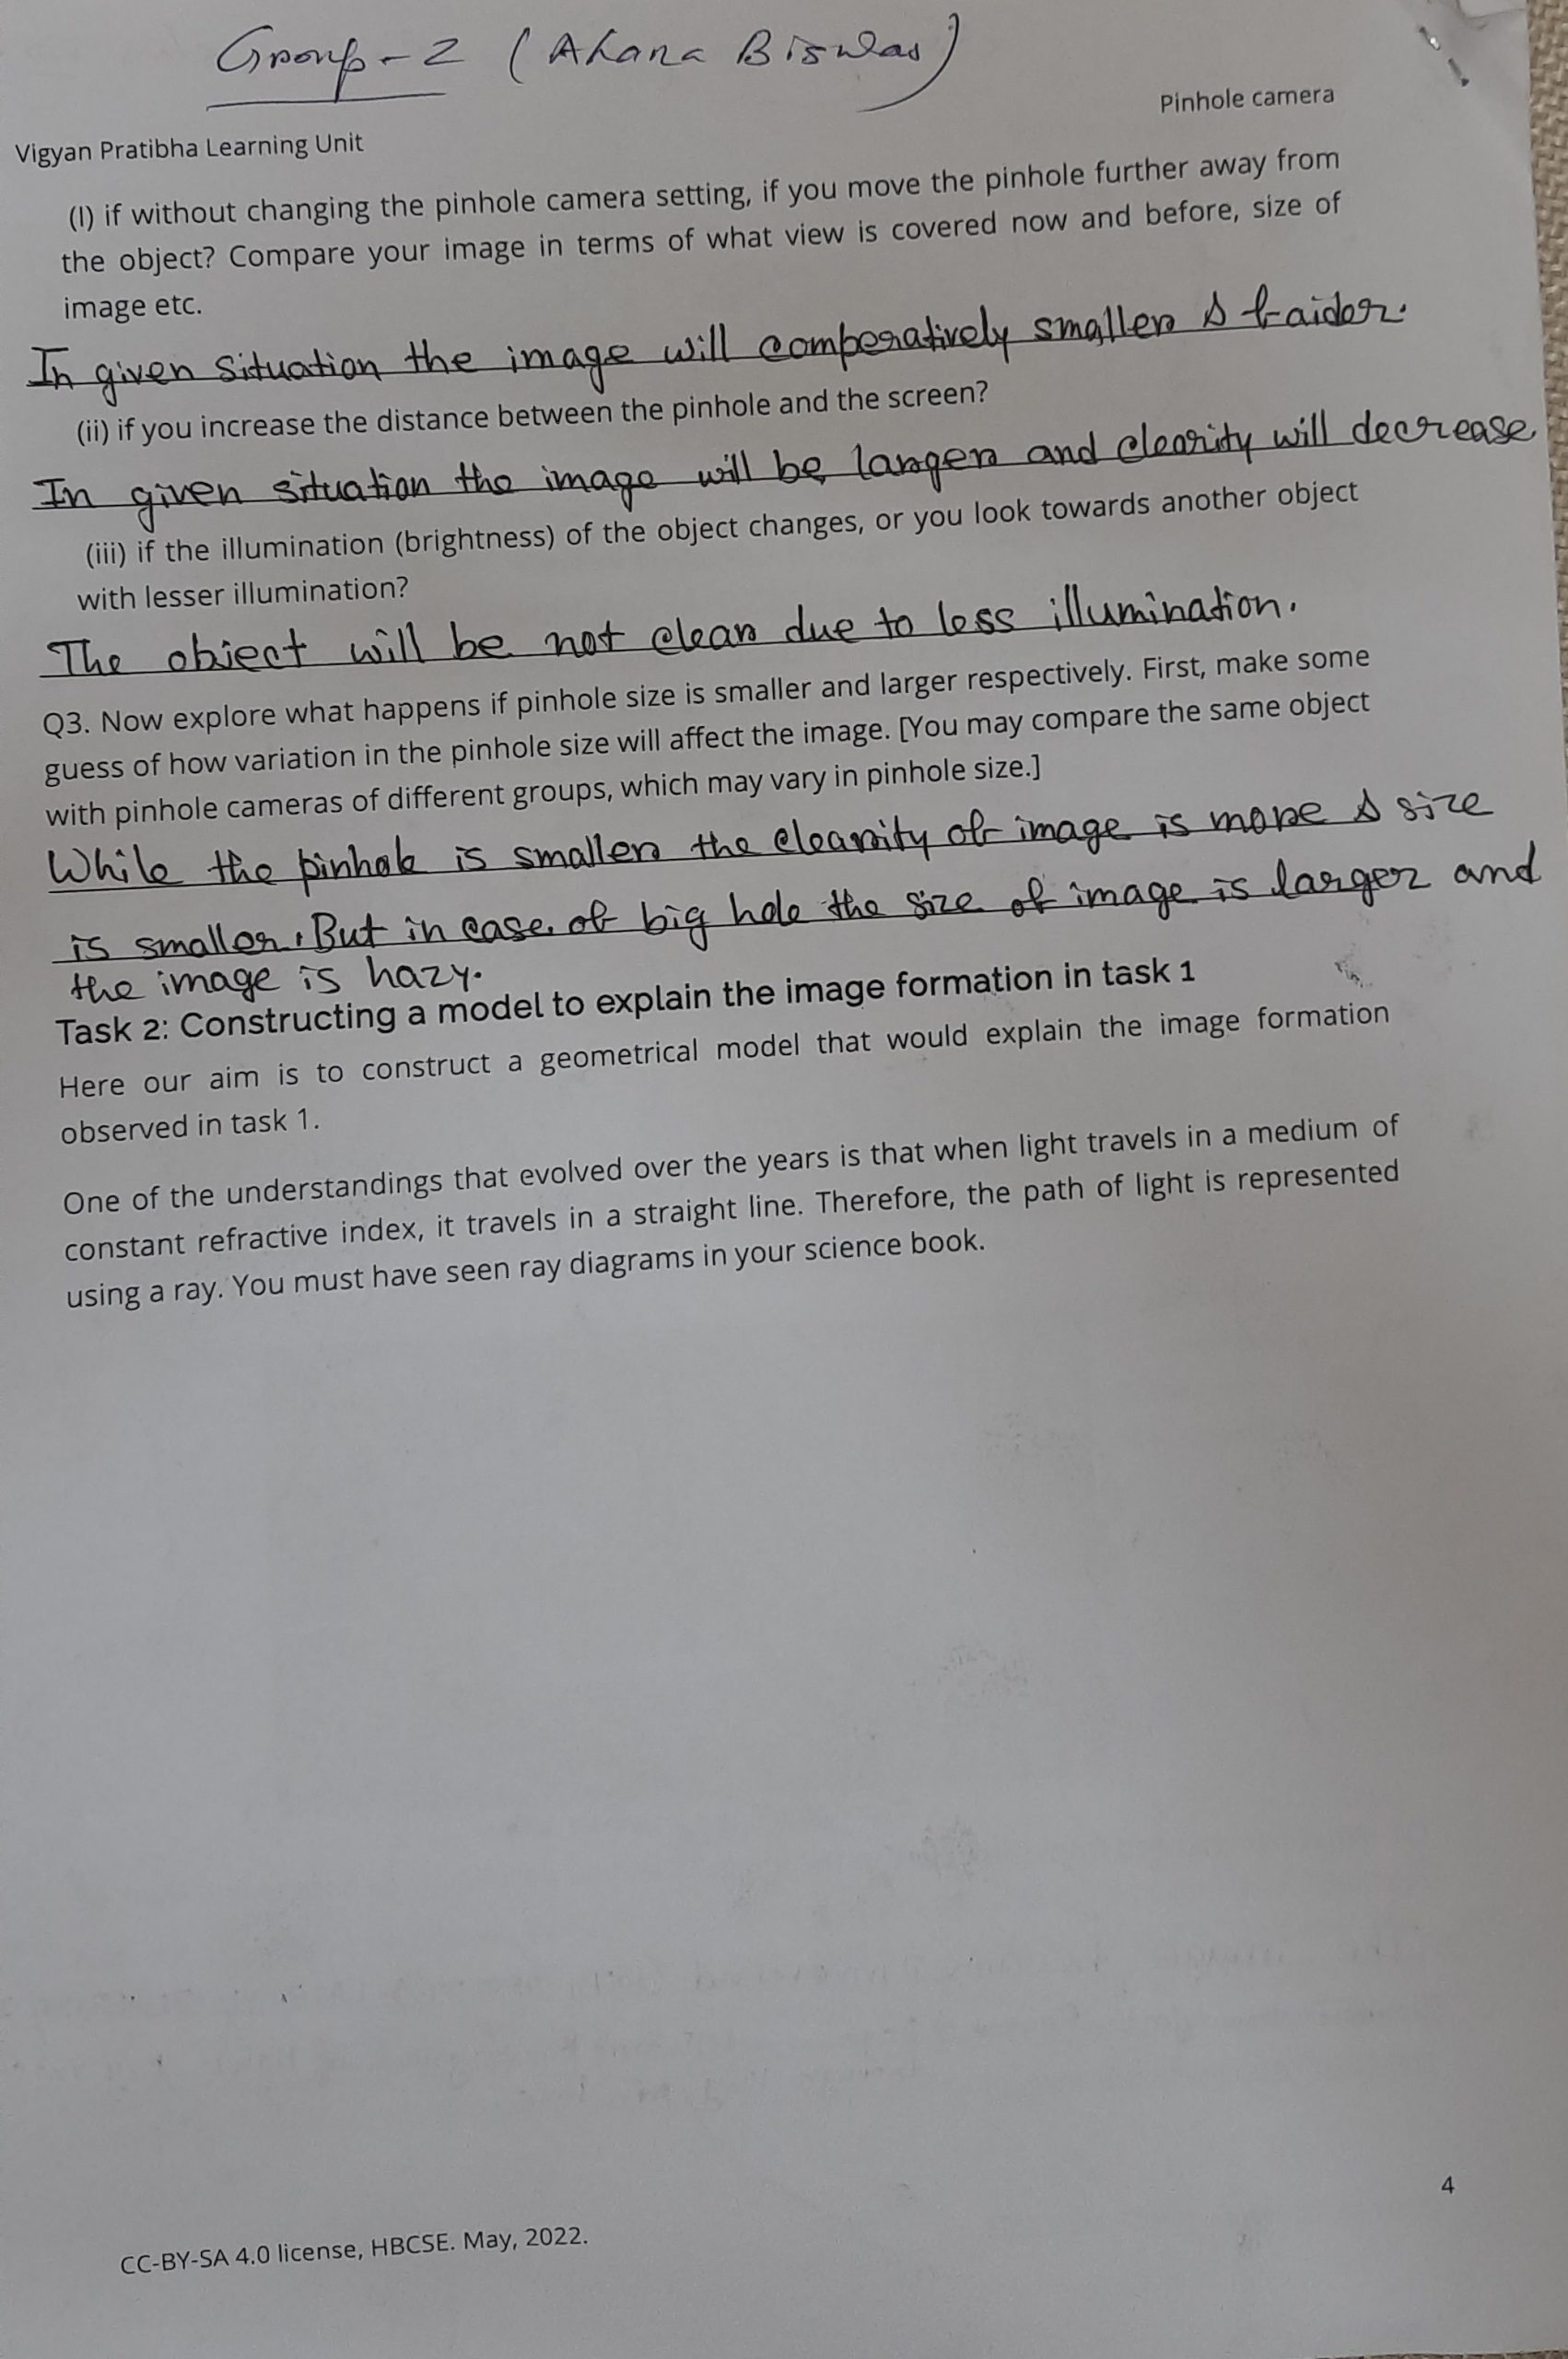 Group-2 (Ahana Biswas)
Pinhole camera
Vigyan Pratibha Learning Unit
(I) if without changing the pinhole camera setting, if you move the pinhole further away from
the object? Compare your image in terms of what view is covered now and before, size of
image etc.
In given situation the image will comperatively smaller &
(ii) if you increase the distance between the pinhole and the screen?
In given situation the image will be larger and clearity will decrease
(iii) if the illumination (brightness) of the object changes, or you look towards another object
with lesser illumination?
The object will be not clear due to less illumination.
Q3. Now explore what happens if pinhole size is smaller and larger respectively. First, make some
guess of how variation in the pinhole size will affect the image. [You may compare the same object
with pinhole cameras of different groups, which may vary in pinhole size.]
While the pinhole is smaller the clearity of image is more & size
is smaller. But in case of big hole the size of image is larger and
the image is hazy.
Task 2: Constructing a model to explain the image formation in task 1
Here our aim is to construct a geometrical model that would explain the image formation
observed in task 1.
One of the understandings that evolved over the years is that when light travels in a medium of
constant refractive index, it travels in a straight line. Therefore, the path of light is represented
using a ray. You must have seen ray diagrams in your science book.
4
CC-BY-SA 4.0 license, HBCSE. May, 2022.